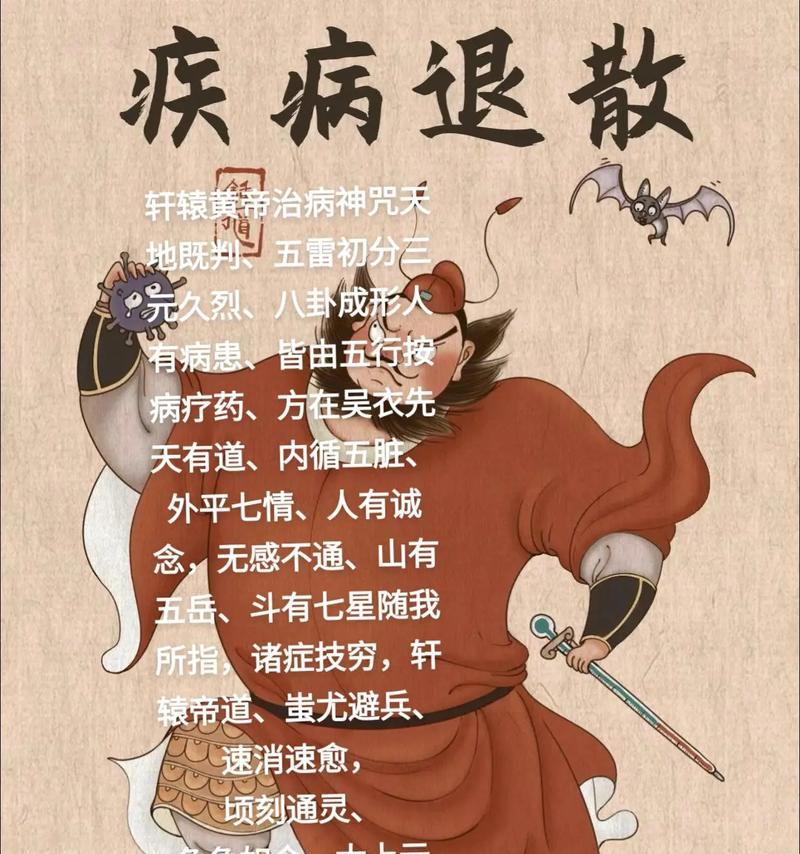 疾病退散
轩辕黄帝治病神咒天
地既判、五雷初分三
元久烈、八卦成形人
有病患、皆由五行按
病疗药、方在吴衣先
天有道、内循五脏、
外平七情、人有诚
念，无感不通、山有
五岳、斗有七星随我
所指，诸症技穷，轩
辕帝道、蚩尤避兵、
速消速愈，
顷刻通灵、